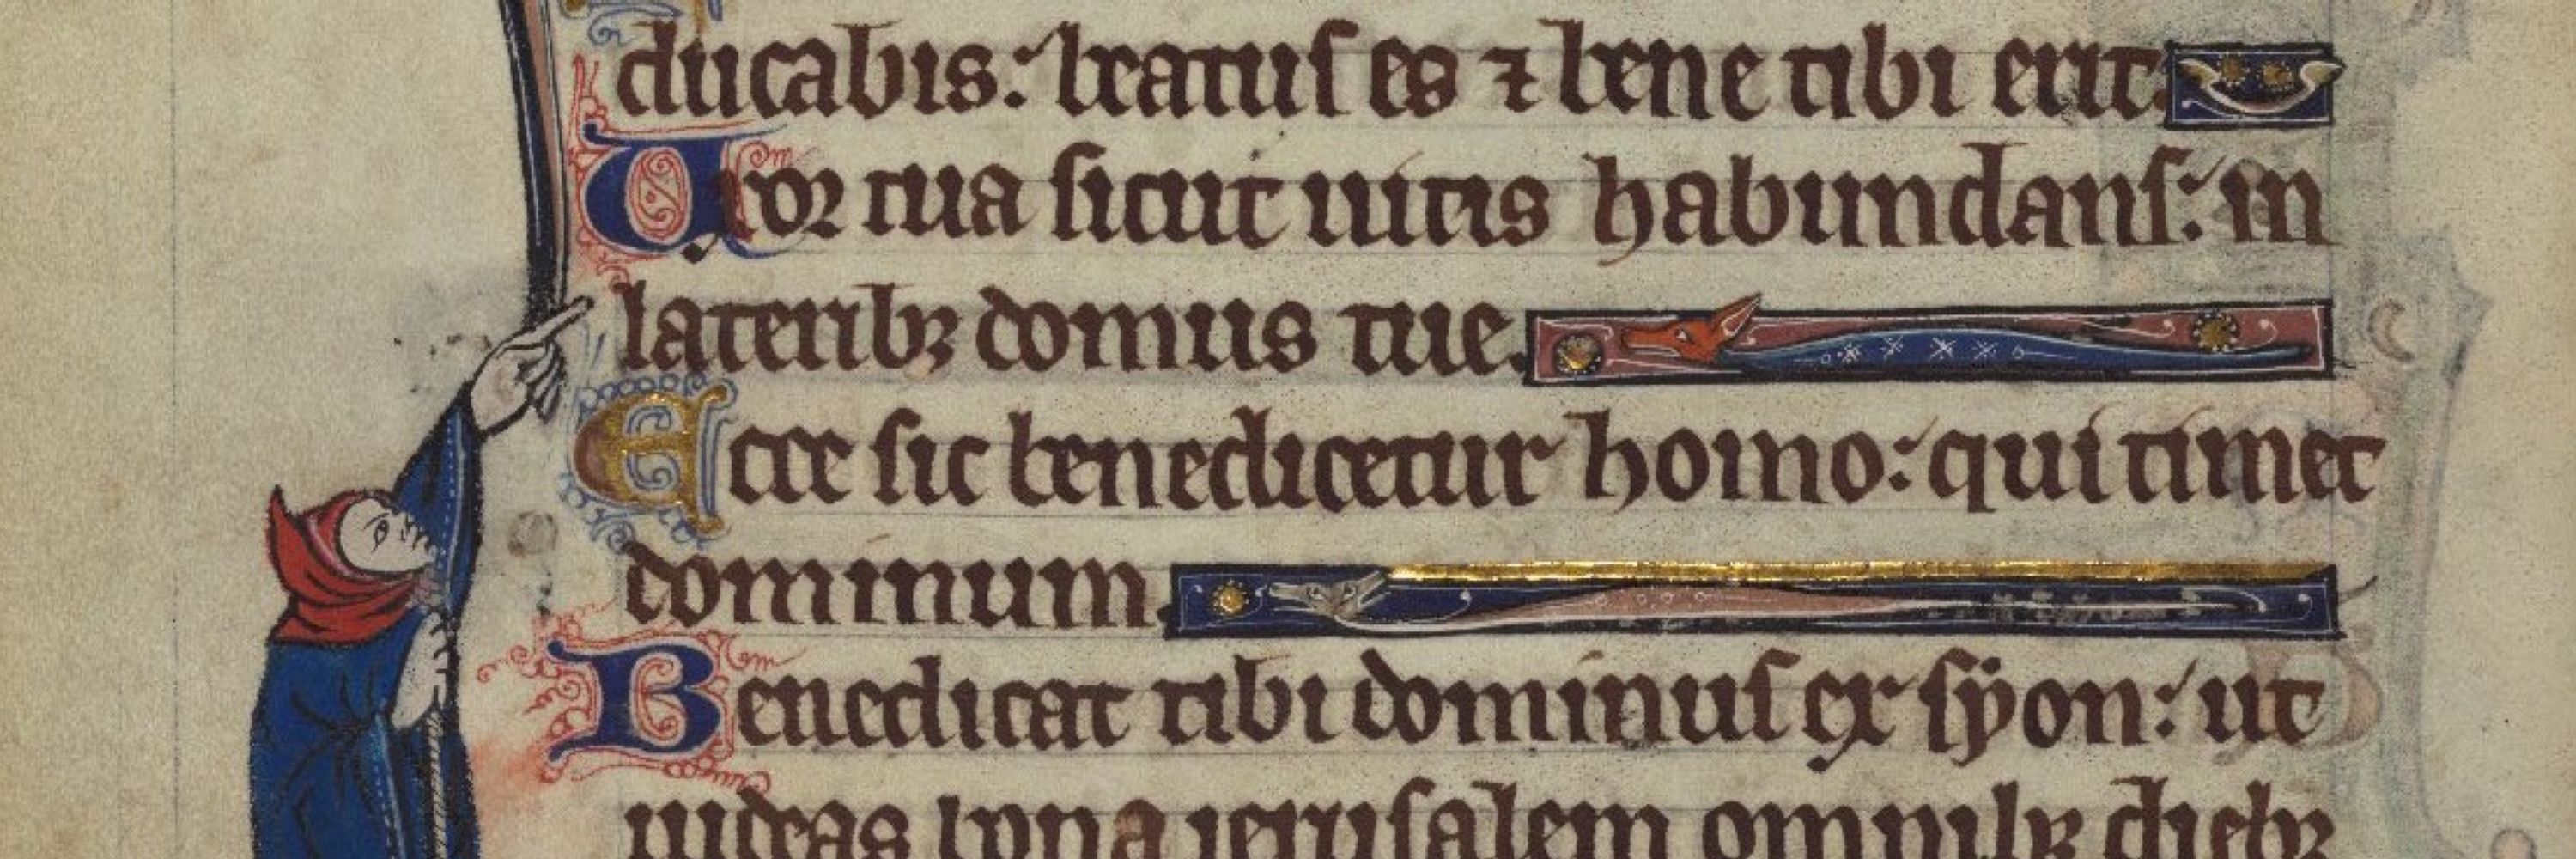 ducabis: beatus es ⁊ bene tibi erit.
Uxor tua sicut uitis habundans: in
lateribꝫ domus tue.
Ecce sic benedicetur homo: qui timet
dominum.
Benedicat tibi dominus ex syon: ut
uideas bona ierusalem omnibꝫ diebꝫ